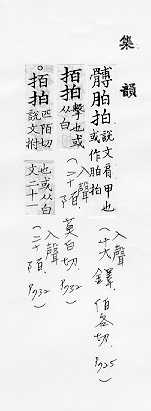 集韻
髆胉拍說文肩甲也或作胉拍
入聲
(十九鐸。伯各切。p725)
拍拍擊也或从白
入聲
(二十陌
莫白切。p732)
。拍拍匹陌切說文拊也或从白文二十一
入聲
(二十陌。p732)